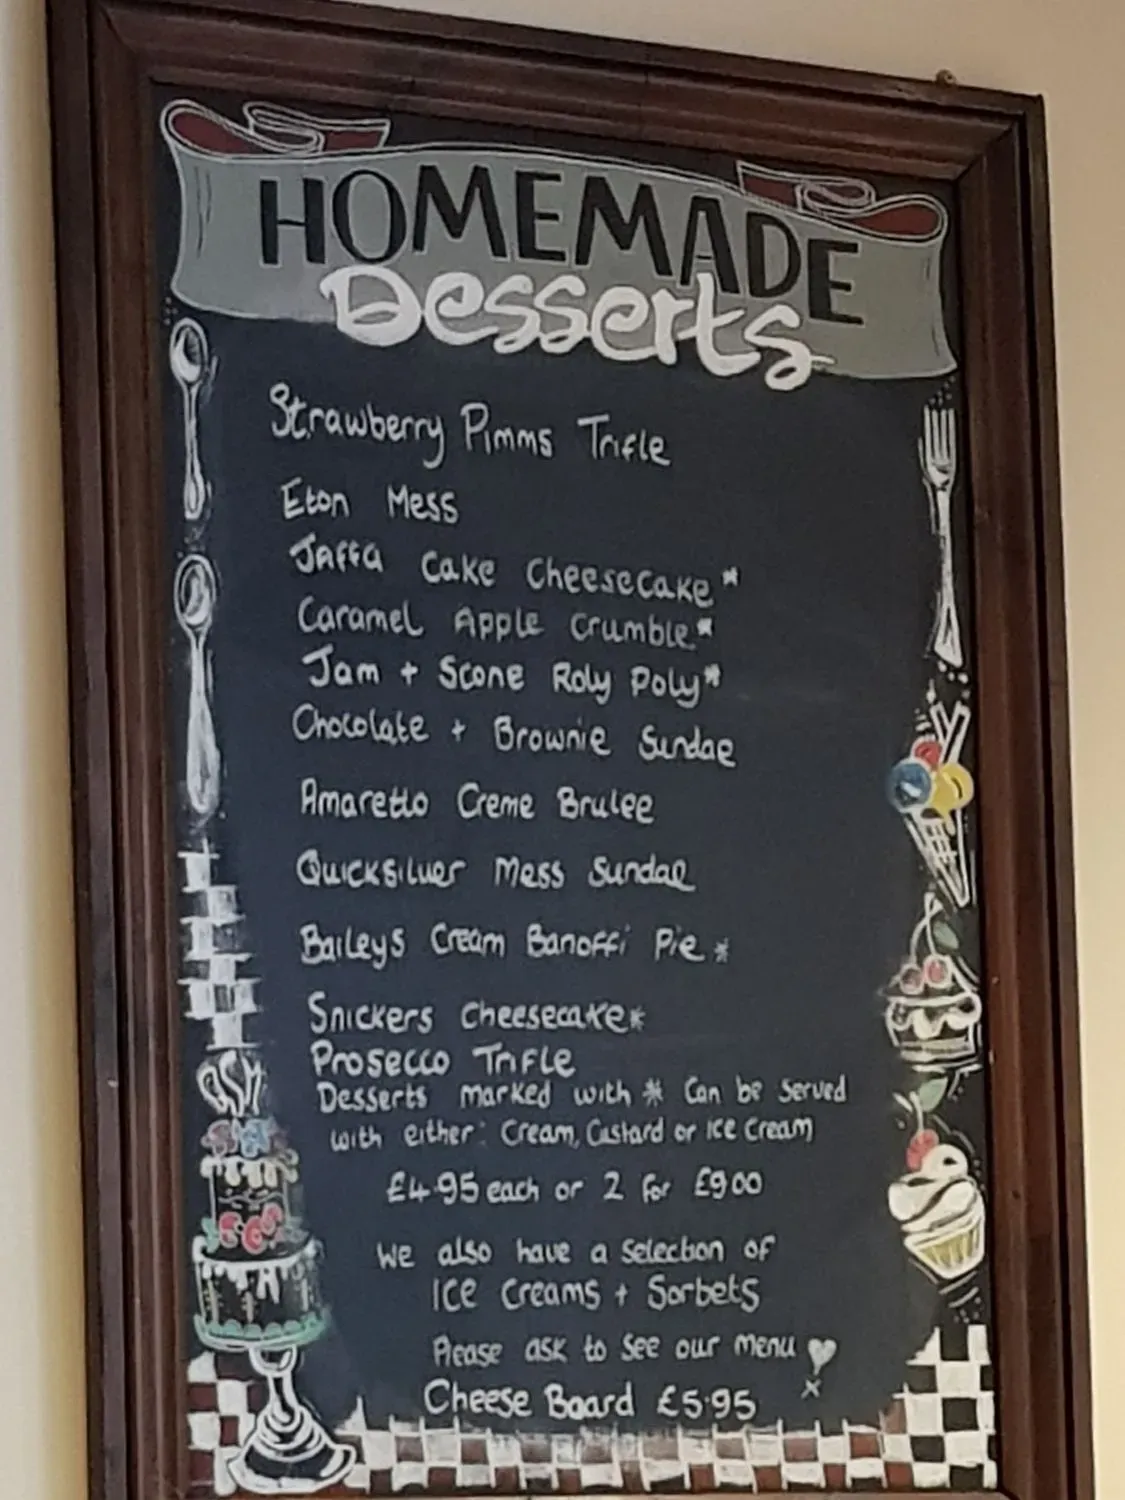 HOMEMADE
Desserts
Strawberry Pimms Trifle
Eton Mess
Jaffa Cake Cheesecake*
Caramel Apple Crumble*
Jam + Scone Roly Poly*
Chocolate + Brownie Sundae
Amaretto Creme Brulee
Quicksilver Mess Sundae
Baileys Cream Banoffi Pie*
Snickers Cheesecake*
Prosecco Trifle
Desserts marked with * Can be Served
with either: Cream, Custard or Ice Cream
£4.95 each or 2 for £9.00
We also have a Selection of
Ice Creams + Sorbets
Please ask to See our menu
x
Cheese Board £5.95